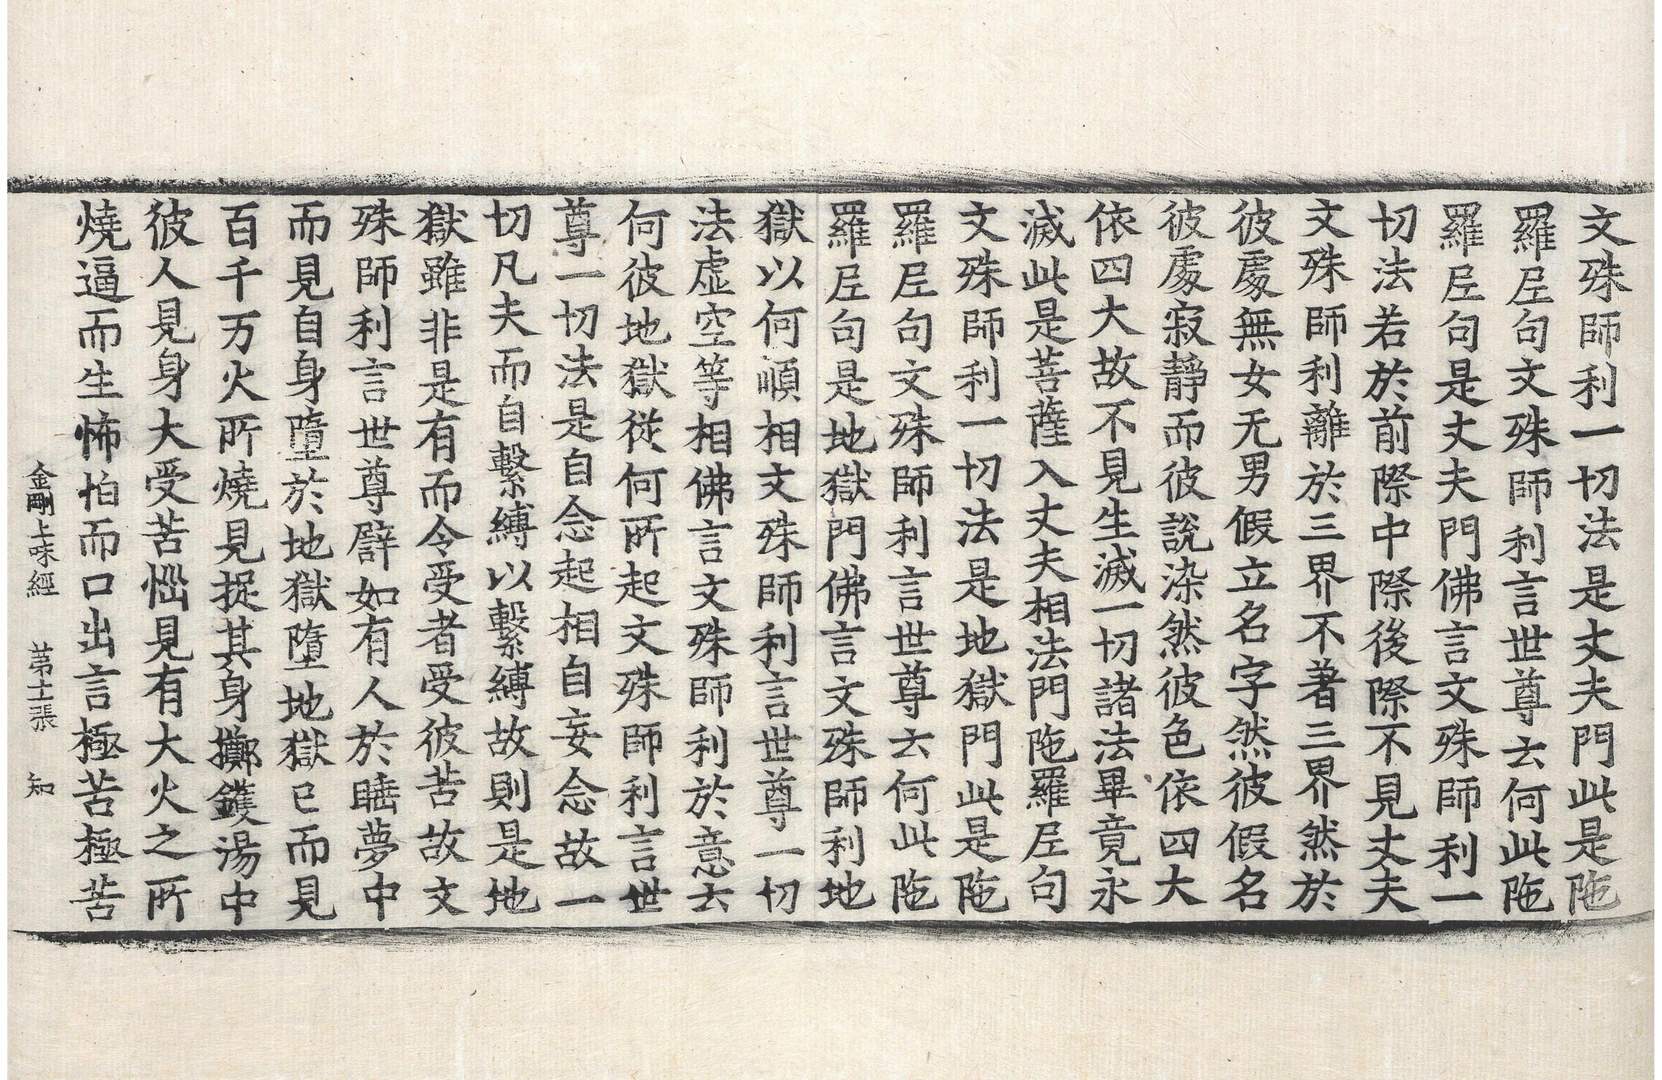 文殊師利一切法是丈夫門此是陁
羅尼句文殊師利言世尊云何此陁
羅尼句是丈夫門佛言文殊師利一
切法若於前際中際後際不見丈夫
文殊師利離於三界不著三界然於
彼處無女无男假立名字然彼假名
彼處寂靜而彼說染然彼色依四大
依四大故不見生滅一切諸法畢竟永
滅此是菩薩入丈夫相法門陁羅尼句
文殊師利一切法是地獄門此是陁
羅尼句文殊師利言世尊云何此陁
羅尼句是地獄門佛言文殊師利地
獄以何順相文殊師利言世尊一切
法虛空等相佛言文殊師利於意云
何彼地獄從何所起文殊師利言世
尊一切法是自念起相自妄念故一
切凡夫而自繫縛以繫縛故則是地
獄雖非是有而令受者受彼苦故文
殊師利言世尊譬如有人於睡夢中
而見自身墮於地獄墮地獄已而見
百千万火所燒見捉其身擲鑊湯中
彼人見身大受苦惱見有大火之所
燒逼而生怖怕而口出言極苦極苦
金剛上味經　第十二張　知